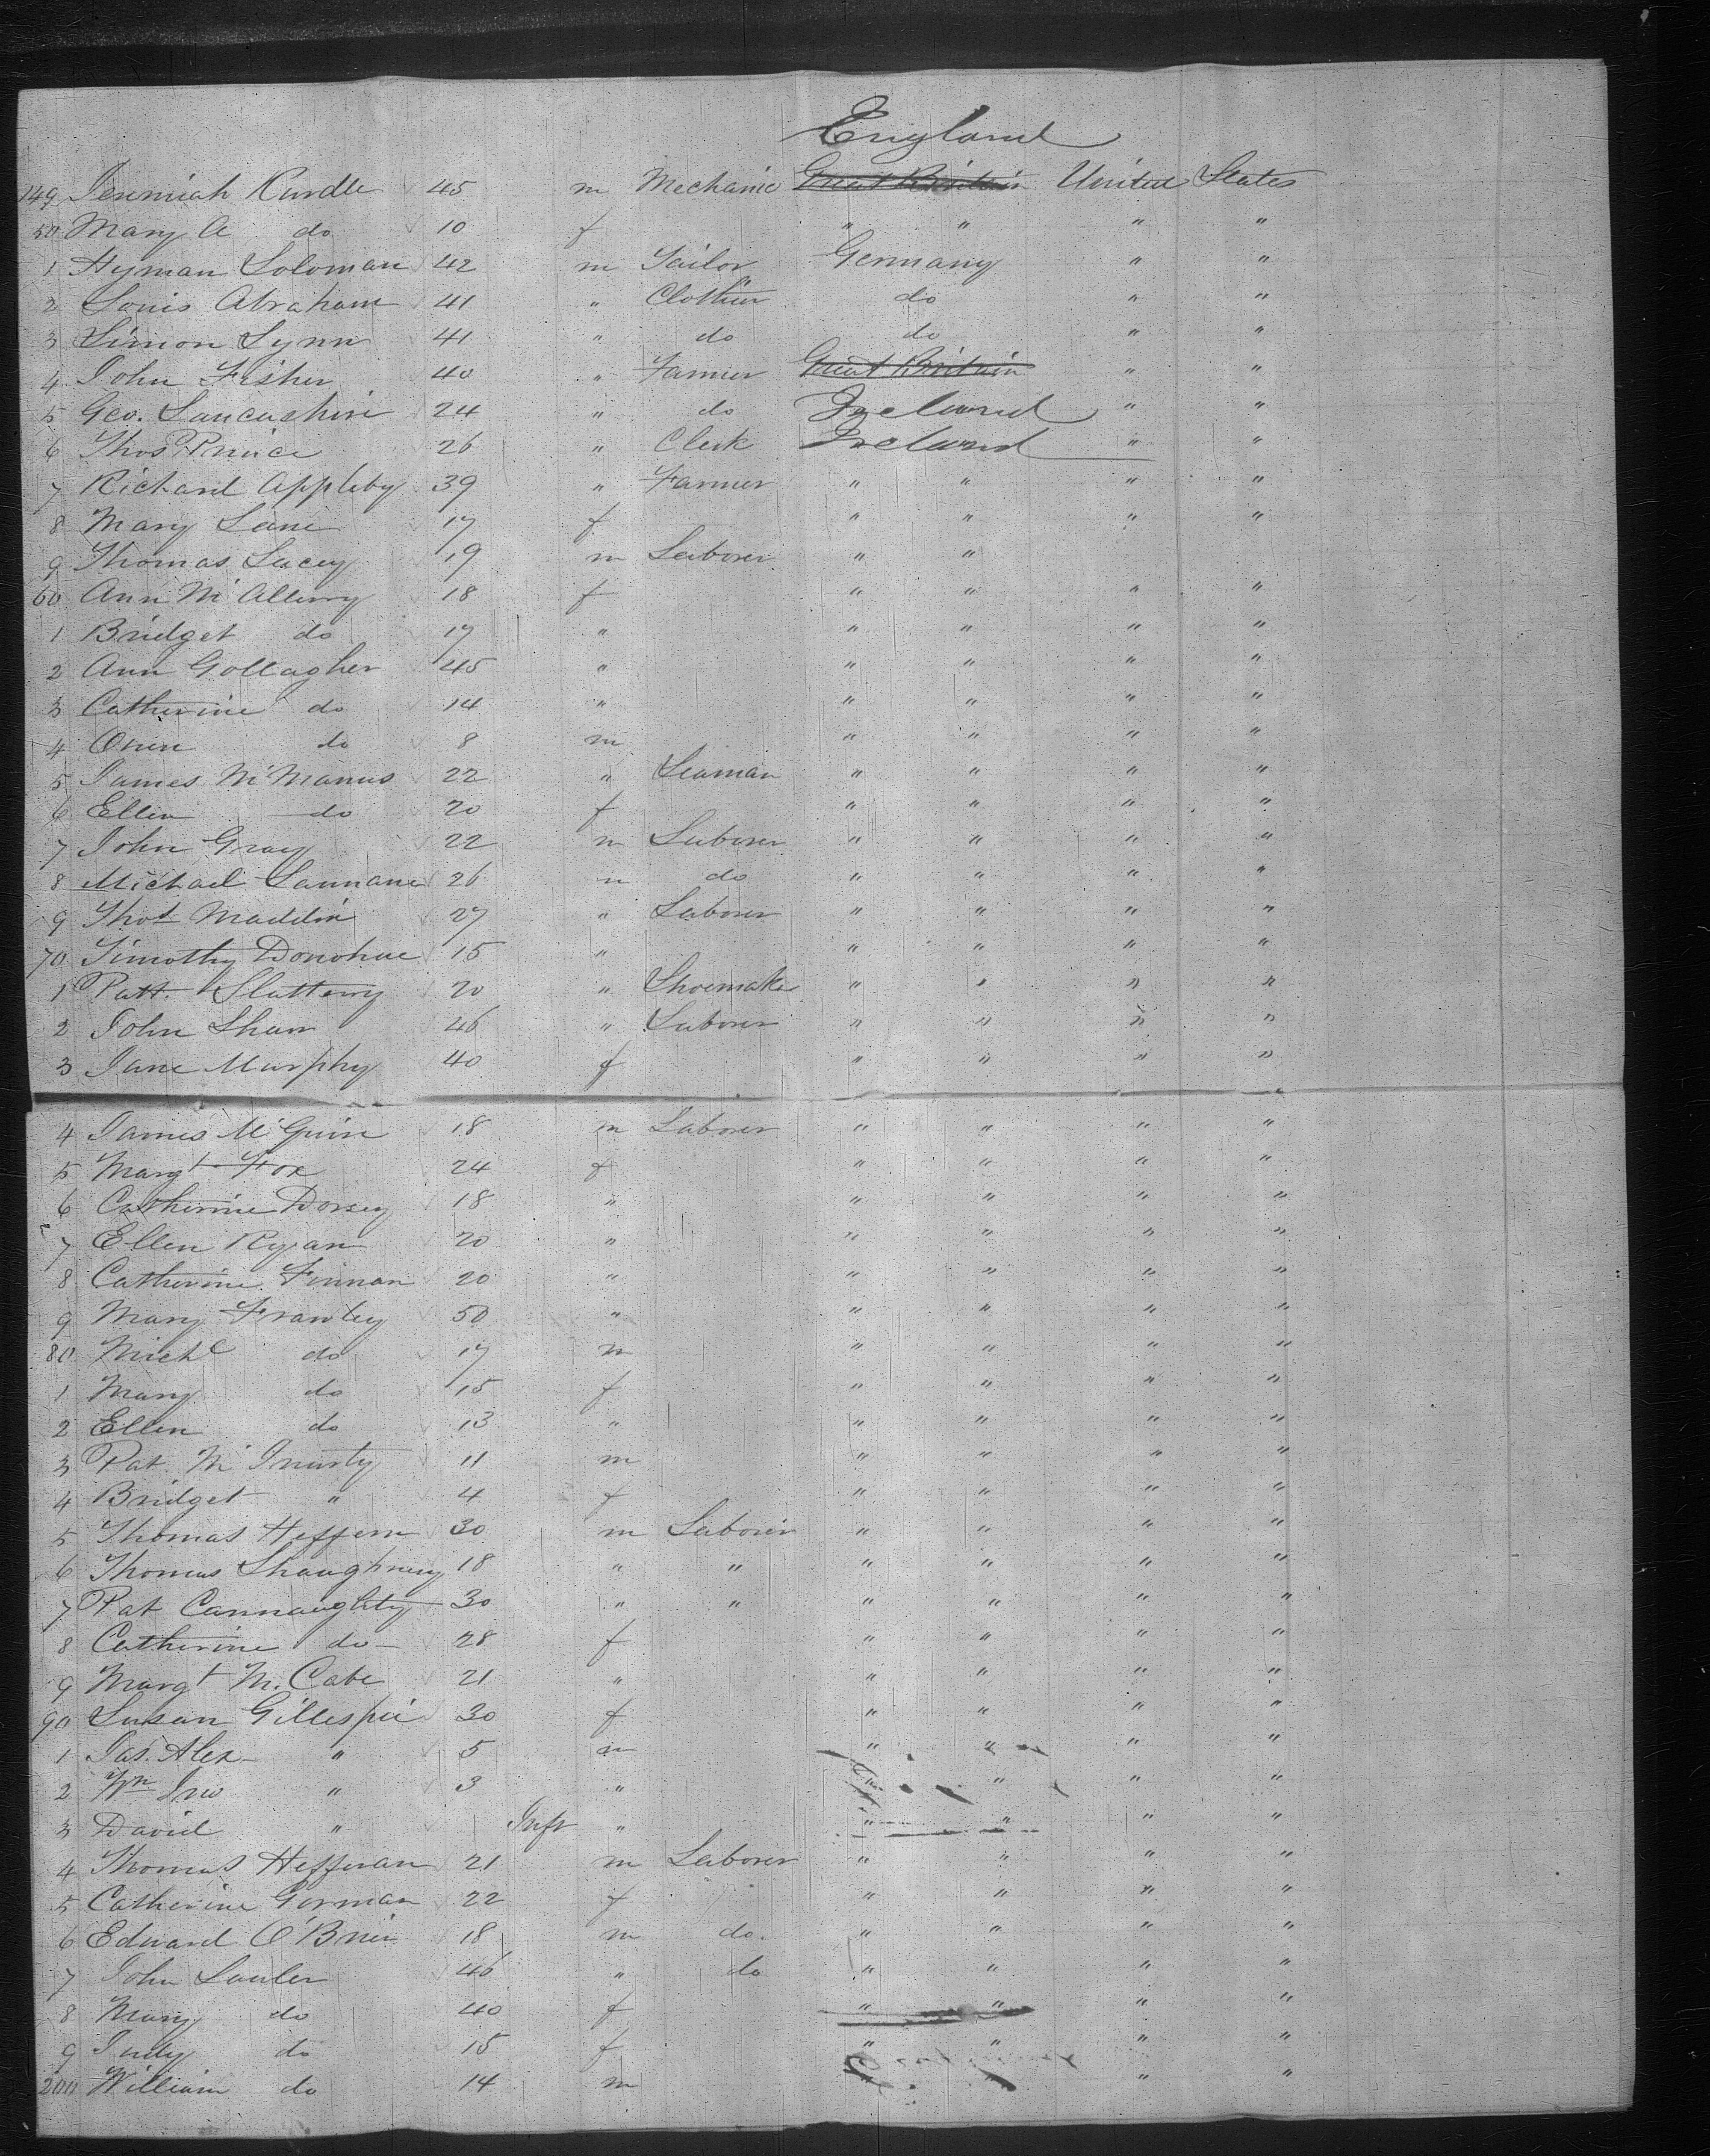 England
149 Jeremiah Kurdle 45 m Mechanic Great Britain United States
50 Mary A do 10 f " " " "
1 Hyman Soloman 42 m Tailor Germany " "
2 Louis Abraham 41 " Clothier do " "
3 Simon Lynn 41 " do do " "
4 John Fisher 40 " Farmer Great Britain " "
5 Geo. Lancashire 24 " do Ireland " "
6 Thos Prince 26 " Clerk Ireland " "
7 Richard Appleby 39 " Farmer " " " "
8 Mary Lane 17 f " " " "
9 Thomas Lacey 19 m Laborer " "
60 Ann Mc Alleny 18 f " " " "
1 Bridget do 17 " " " " "
2 Ann Gollagher 45 " " " " "
3 Catherine do 14 " " " " "
4 Owen do 8 m " " " "
5 James McManus 22 " Seaman " " " "
6 Ellen do 20 f " " " "
7 John Gray 22 m Laborer " " " "
8 Michael Lannane 26 m do " " " "
9 Thos Maddin 27 " Laborer " " " "
70 Timothy Donohue 15 " " " " "
1 Patt. Slattery 20 " Shoemaker " " " "
2 John Shaw 46 " Laborer " " " "
3 Jane Murphy 40 f " " " "
4 James McGuire 18 m Laborer " " " "
5 Margt Fox 24 f " " " "
6 Catherine Dorsey 18 " " " " "
7 Ellen Ryan 20 " " " " "
8 Catherine Finnan 20 " " " " "
9 Mary Frawley 50 " " " " "
80 Michl do 17 m " " " "
1 Mary do 15 f " " " "
2 Ellen do 13 " " " " "
3 Pat. Mc 11 m " " " "
4 Bridget " 4 f " " " "
5 Thomas Heffern 30 m Laborer " " " "
6 Thomas Shaughnesy 18 " " " " " "
7 Pat Cannaughty 30 " " " " " "
8 Catherine do 28 f " " " "
9 Margt Mc.Cabe 21 " " " " "
90 Susan Gillespie 30 f " " " "
1 Jas. Alex " 5 m " " " "
2 Wm " 3 " " " " "
3 David " Inft " " " " "
4 Thomas Heffernan 21 m Laborer " " " "
5 Catherine Gorman 22 f " " " "
6 Edward O'Brien 18 m do. " " " "
7 John Lawler 46 " do " " " "
8 Mary do 40 f " " " "
9 Judy do 15 f " " " "
200 William do 14 m " "